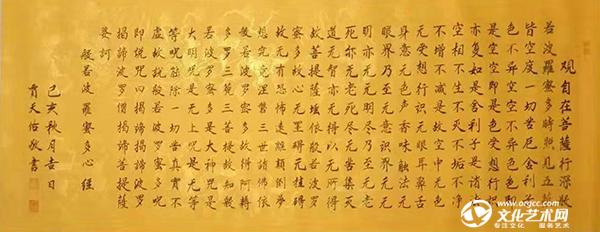 观自在菩薩行深般
若波羅蜜多時照見五蕴
皆空度一切苦厄舍利子
色不异空空不异色色即
是空空即是色受想行識
亦复如是舍利子是诸法
空相不生不灭不垢不净
不增不减是故空中无色
无受想行識无眼耳鼻舌
身意无色声香味触法无
眼界乃至无意识界无无
明亦无无明尽乃至无老
死亦无老死尽无苦集灭
道无智亦无得以无所得
故菩提薩埵依般若波罗
蜜多故心无罣碍无罣碍
故无有恐怖远離颠倒夢
想究竟涅槃三世诸佛依
般若波羅蜜多故得阿耨
多罗三藐三菩提故知般
若波羅蜜多是大神咒是
大明咒是无上咒是无等
等咒能除一切苦真實不
虚故説般若波羅蜜多咒
即说咒曰揭諦揭諦波罗
揭諦波罗僧揭諦菩提薩
婆訶
般若波羅蜜多心经
己亥秋月吉日
天佑敬書
文化艺术网
www.orgcc.com
专注文化·服务艺术